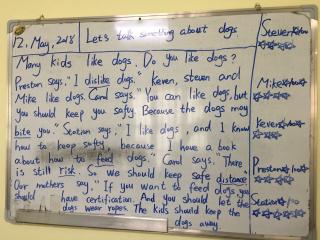 12, May, 2018 Let's talk something about dogs
Many kids like dogs. Do you like dogs?
Preston says, "I dislike dogs." Keven, steven and
Mike like dogs. Carol says, "You can like dogs, but
you should keep you safty. Because the dogs may
bite you." Station says, "I like dogs, and I know
how to keep safty, because I have a book
about how to feed dogs." Carol says, "There
is still risk. So we should keep safe distance"
Our mothers say, "If you want to feed dogs you
should have certification. And you should let the
dogs wear ropes. The kids should keep the
dogs away.
Steven
Mike
Keven
Preston
Station